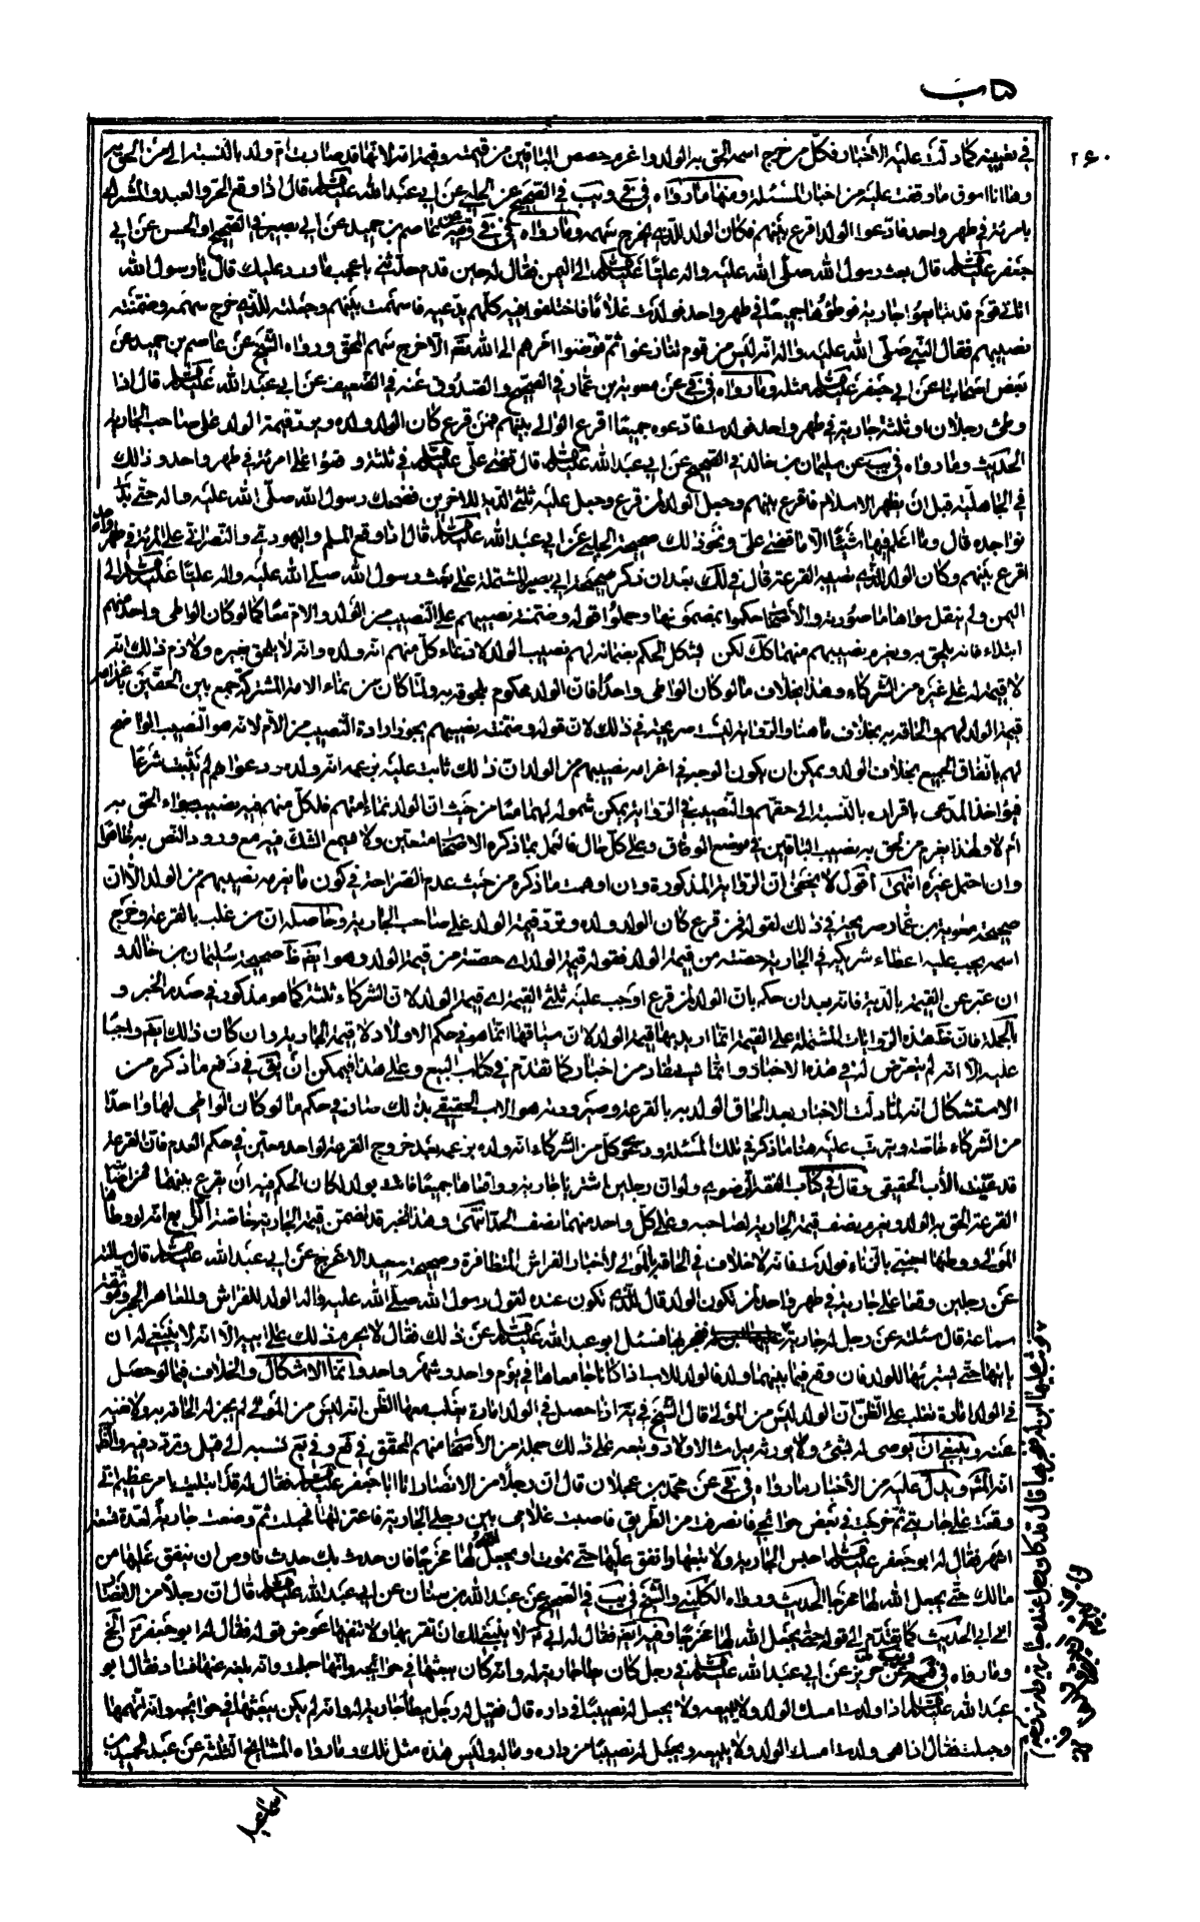 كتاب
٢٦٠
في تعيينه كما دلت عليه الأخبار فكل من خرج اسمه الحق به الولد واغرم حصص الباقين من قيمته وقيمة امه لانها قد صارت ام ولد بالنسبة الى من الحق به
وها انا اسوق ما وقفت عليه من اخبار المسئلة ومنها ما رواه في في ويب في الصحيح عن الحلبي عن ابي عبد الله عليه السلام قال اذا وقع الحر والعبد والمشرك
بامرئة في طهر واحد فادعوا الولد اقرع بينهم فكان الولد للذي يخرج سهمه وما رواه في في وفيه عن عاصم بن حميد عن ابي بصير في الصحيح او الحسن عن ابي
جعفر عليه السلام قال بعث رسول الله صلى الله عليه واله عليا عليه السلام الى اليمن فقال له حين قدم حدثني باعجب ما ورد عليك قال يا رسول الله
اتاني قوم قد تبايعوا جارية فوطؤها جميعا في طهر واحد فولدت غلاما فاختلفوا فيه كلهم يدعيه فاسهمت بينهم وجعلته للذي خرج سهمه وضمنته
نصيبهم فقال النبي صلى الله عليه واله انه ليس من قوم تنازعوا ثم فوضوا امرهم الى الله تعم الا خرج سهم المحق ورواه الشيخ عن عاصم بن حميد عن
بعض اصحابنا عن ابي جعفر عليه السلام مثله وما رواه في في عن معوية بن عمار في الصحيح والصدوق عنه في الضعيف عن ابي عبد الله عليه السلام قال اذا
وطئ رجلان او ثلثة جارية في طهر واحد فولدت فادعوه جميعا اقرع الوالي بينهم فمن قرع كان الولد ولده ويرد قيمة الولد على صاحب الجارية
الحديث وما رواه في يب عن سليمان بن خالد في الصحيح عن ابي عبد الله عليه السلام قال قضى علي عليه السلام في ثلثة وقعوا على امرئة في طهر واحد وذلك
في الجاهلية قبل ان يظهر الاسلام فاقرع بينهم وجعل الولد لمن قرع وجعل عليه ثلثي الدية للاخرين فضحك رسول الله صلى الله عليه واله حتى بدت
نواجده قال وما اعلم فيها شيئا الا ما قضى علي ونحو ذلك صحيحة الحلبي عن ابي عبد الله عليه السلام قال اذا وقع المسلم واليهودي والنصراني على المرئة في طهر واحد
اقرع بينهم وكان الولد للذي نصيبه القرعة قال في لك بعد ان ذكر صحيحة ابي بصير المشتملة على بعث رسول الله صلى الله عليه واله عليا عليه السلام الى
اليمن ولم ينقل سواها ما صورته والأصحاب حكموا بمضمونها وحملوا قوله وضمنته نصيبهم على النصيب من الولد والام معا كما لو كان الواطي واحد منهم
ابتداء فانه يلحق به ويغرم نصيبهم منهما كك لكن يشكل الحكم بضمانه لهم نصيب الولد لادعاء كل منهم انه ولده وانه لا يلحق بغيره ولازم ذلك انه
لا قيمة له على غيره من الشركاء وهذا بخلاف ما لو كان الواطي واحدا فان الولد محكوم بلحوقه به ولما كان من نماء الامة المشتركة جمع بين الحقين باغرامه
قيمة الولد لهم والحاقه به بخلاف ما هنا والرواية ليست صريحة في ذلك لان قوله وضمنته نصيبهم يجوز ارادة النصيب من الأم لانه هو النصيب الواضح
لهم باتفاق الجميع بخلاف الولد ويمكن ان يكون الوجه في اغرامه نصيبهم من الولد ان ذلك ثابت عليه بزعمه انه ولده ودعواهم لم يثبت شرعا
فيؤاخذ المدعي باقراره بالنسبة الى حقهم والنصيب في الرواية يمكن شموله لهما معا من حيث ان الولد نماء امتهم فلكل منهم فيه نصيب سواء الحق به
ام لا ولهذا يغرم من يلحق به نصيب الباقين في موضع الوفاق وعلى كل حال فالعمل بما ذكره الاصحاب متعين ولا يسمع الشك فيه مع ورود النص به ظاهرا
وان احتمل غيره انتهى اقول لا يخفى ان الرواية المذكورة وان اوهمت ما ذكره من حيث عدم الصراحة في كون ما يغرمه نصيبهم من الولد الا ان
صحيحة معوية بن عمار صريحة في ذلك لقوله فمن قرع كان الولد ولده ويرد قيمة الولد على صاحب الجارية وحاصله ان من غلب بالقرعة وخرج
اسمه يجب عليه اعطاء شريكه في الجارية حصته من قيمة الولد فقوله قيمة الولد اي حصته من قيمة الولد وهو ايضا ظاهر صحيحة سليمان بن خالد و
ان عبر عن القيمة بالدية فانه بعد ان حكم بان الولد لمن قرع اوجب عليه ثلثي القيمة اي قيمة الولد لان الشركاء ثلثة كما هو مذكور في صدر الخبر و
بالجملة فان ظاهر هذه الروايات المشتملة على القيمة انما اريد بها قيمة الولد لان سياقها انما هو في حكم الاولاد لا قيمة الجارية وان كان ذلك ايضا واجبا
عليه الا انه لم يتعرض له في هذه الاخبار وانما يستفاد من اخبار كما تقدم في كتاب البيع وعلى هذا فيمكن ان يق في دفع ما ذكره من
الاستشكال انه لما دلت الاخبار بعد الحاق الولد به بالقرعة وصيرورته هو الاب الحقيقي بذلك صار في حكم ما لو كان الواطي لها واحدا
من الشركاء خاصة ويترتب عليه هنا ما ذكر في تلك المسئلة ودعوى كل من الشركاء انه ولده بزعمه بعد خروج القرعة لواحد معين في حكم العدم فان القرعة
قد عينت الأب الحقيقي وقال في كتاب الفقه الرضوي ولو ان رجلين اشتريا جارية وواقعاها جميعا فاتت بولد لكان الحكم فيه ان يقرع بينهما فمن اصابته
القرعة الحق به الولد ويغرم نصف قيمة الجارية لصاحبه وعلى كل واحد منهما نصف الحد انتهى وهذا الخبر قد تضمن قيمة الجارية خاصة الرابع انه لو وطأها
المولى ووطئها اجنبي بالزناء فولدت فانه لا خلاف في الحاقه بالمولى لأخبار الفراش المتظافرة وصحيحة سعيد الاعرج عن ابي عبد الله عليه السلام قال سالته
عن رجلين وقعا على جارية في طهر واحد لمن يكون الولد قال للذي تكون عنده لقول رسول الله صلى الله عليه واله الولد للفراش وللعاهر الحجر وموثقة
سماعة قال سئلته عن رجل له جارية فوثب عليها ابن له ففجر بها فسئل ابو عبد الله عليه السلام عن ذلك فقال لا يحرم ذلك على ابيه الا انه لا ينبغي له ان
ياتيها حتى يستبرئها للولد فان وقع فيما بينهما ولد فالولد للاب اذا كانا جامعاها في يوم واحد وشهر واحد وانما الاشكال والخلاف فيما لو حصل
في الولد امارة تغلب على الظن ان الولد ليس من المولى قال الشيخ في يه اذا حصل في الولد امارة يغلب معها الظن انه ليس من المولى لم يجز له الحاقه به ولا نفيه
عنه وينبغي ان يوصى له بشئ ولا يورثه ميراث الاولاد وتبعه على ذلك جملة من الأصحاب منهم المحقق في فع وفي يع نسبه الى قيل وتردد فيه والظ
انه المشهور ويدل عليه من الأخبار ما رواه في في عن محمد بن عجلان قال ان رجلا من الانصار اتى ابا جعفر عليه السلام فقال له قد ابتليت بامر عظيم اني
وقعت على جاريتي ثم خرجت في بعض حوائجي فانصرفت من الطريق فاصبت غلامي بين رجلي الجارية فاعتزلتها فحبلت ثم وضعت جارية لعدة تسعة
اشهر فقال له ابو جعفر عليه السلام احبس الجارية ولا تبعها وانفق عليها حتى تموت او يجعل الله لها مخرجا فان حدث بك حدث فاوص ان ينفق عليها من
مالك حتى يجعل الله لها مخرجا الحديث ورواه الكليني والشيخ في يب في الصحيح عن عبد الله بن سنان عن ابي عبد الله عليه السلام قال ان رجلا من الانصار
اتى ابي الحديث كما تقدم الى قوله حتى يجعل الله لها مخرجا وفيه ايضا فقال له ابي ع لا ينبغي لك ان تقربها ولا تنفيها عوض قوله فقال له ابو جعفر ع الخ
وما رواه في فيه ويب عن حريز عن ابي عبد الله عليه السلام في رجل كان يطأ جارية له وانه كان يبعثها في حوائجه وانها حبلت وانه بلغه عنها فساد فقال ابو
عبد الله عليه السلام اذا ولدت امسك الولد ولا يبيعه ولا يجعل له نصيبا في داره قال فقيل له رجل يطأ جارية له وانه لم يكن يبعثها في حوائجه وانه اتهمها
وحبلت فقال اذا هي ولدت امسك الولد ولا يبيعه ويجعل له نصيبا من داره وماله وليس هذه مثل تلك وما رواه المشايخ الثلثة عن عبد الحميد بن
اسماعيل